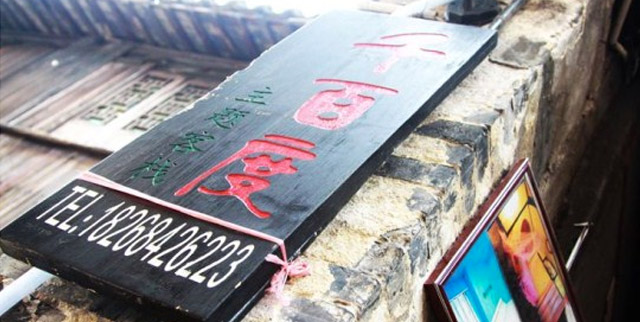 千百度
主题客栈
TEL:18268426223